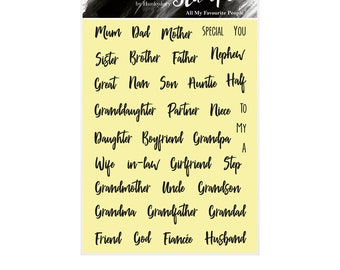 by Hunkydory
All My Favourite People
Mum Dad Mother SPECIAL YOU
Sister Brother Father Nephew
Great Nan Son Auntie Half
Granddaughter Partner Niece TO
Daughter Boyfriend Grandpa MY
A
Wife in-law Girlfriend Step
Grandmother Uncle Grandson
Grandma Grandfather Grandad
Friend God Fiancée Husband